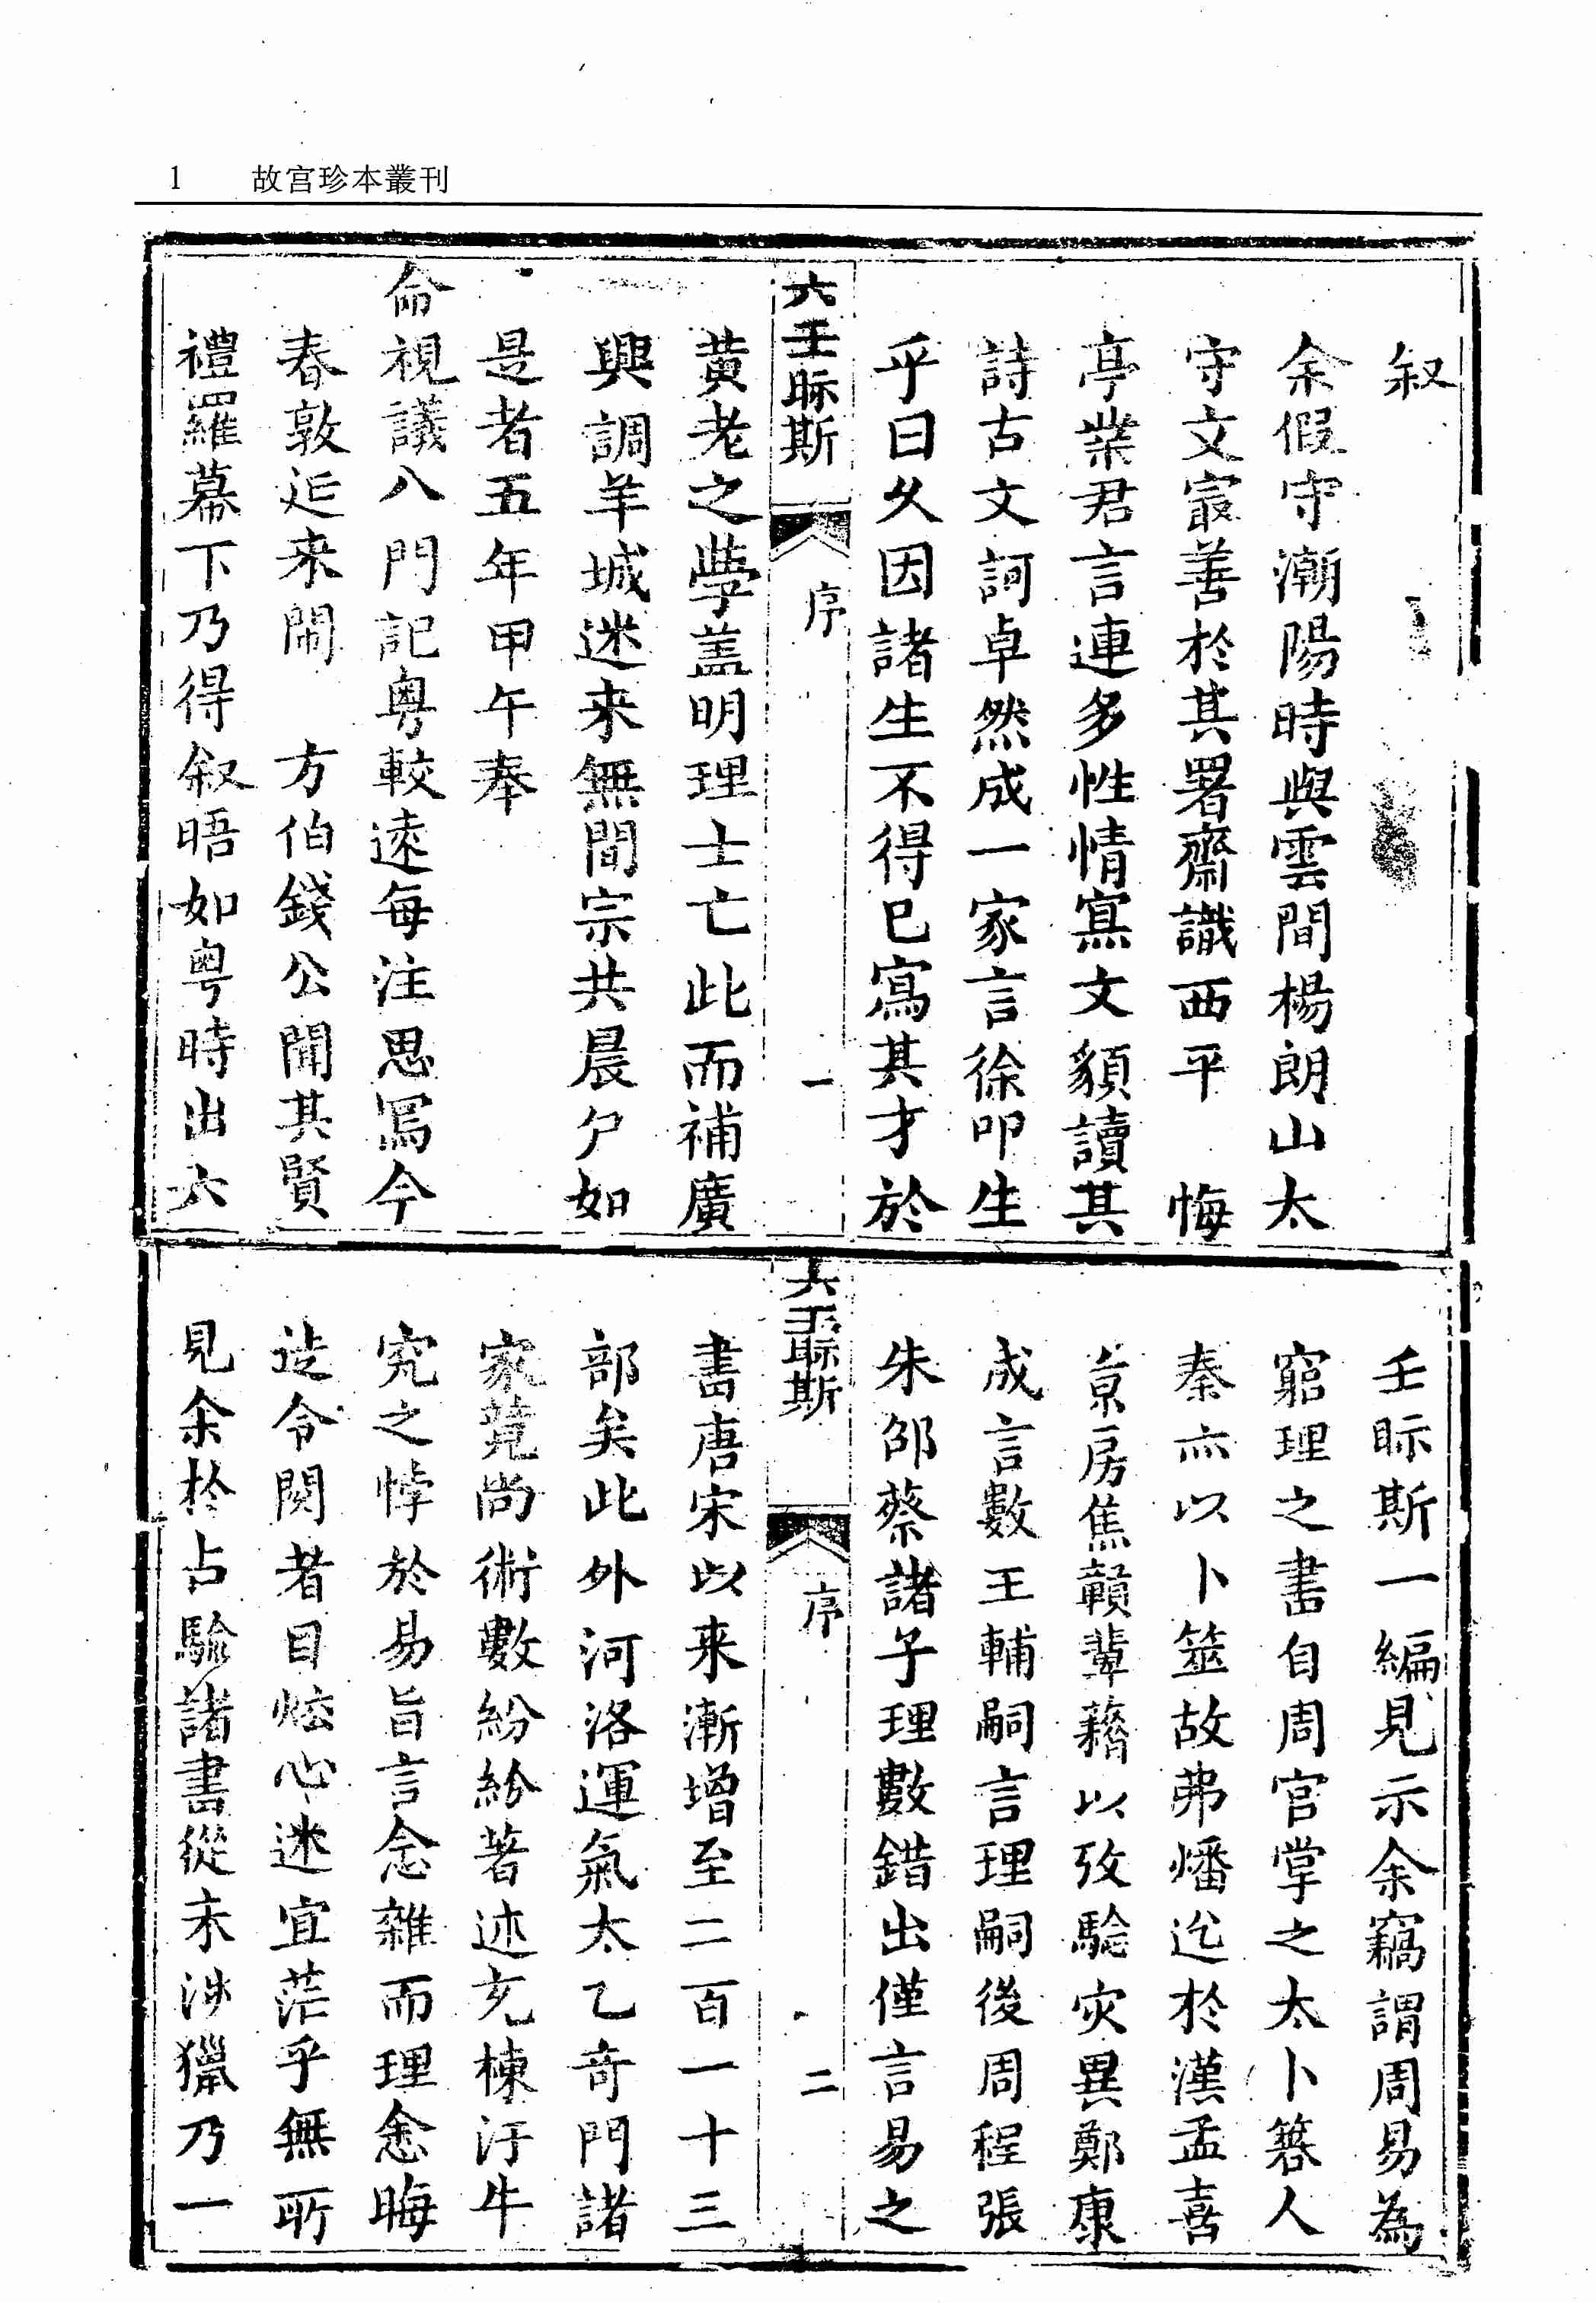 1 故宫珍本叢刊
叙
余假守潮陽時與雲間楊朗山太
守文宴善於其署齋識西平 悔
亭業君言連多性情寫文額讀其
詩古文訶卓然成一家言徐叩生
乎曰乆因諸生不得已寫其才於
六壬眎斯 序 一
黄老之學盖明理士亡此而補廣
興調羊城迷来無間宗共晨夕如
是者五年甲午奉
命視議八門記粤較逺每注思寫今
春敦延来閙 方伯錢公聞其賢
禮羅幕下乃得叙晤如粤時出六
壬眎斯一編見示余竊謂周易為
窮理之書自周官掌之太卜簭人
秦亦以卜筮故弗燔迄於漢孟喜
京房焦贛輩藉以攷驗灾異鄭康
成言數王輔嗣言理嗣後周程張
朱邵蔡諸子理數錯出僅言易之
六壬眎斯 序 二
書唐宋以来漸增至二百一十三
部矣此外河洛運氣太乙奇門諸
家競尚術數紛紛著述充棟汗牛
究之悖於易旨言念雜而理念晦
迷令閱者目炫心迷宜茫乎無所
見余於占驗諸書從未涉獵乃一